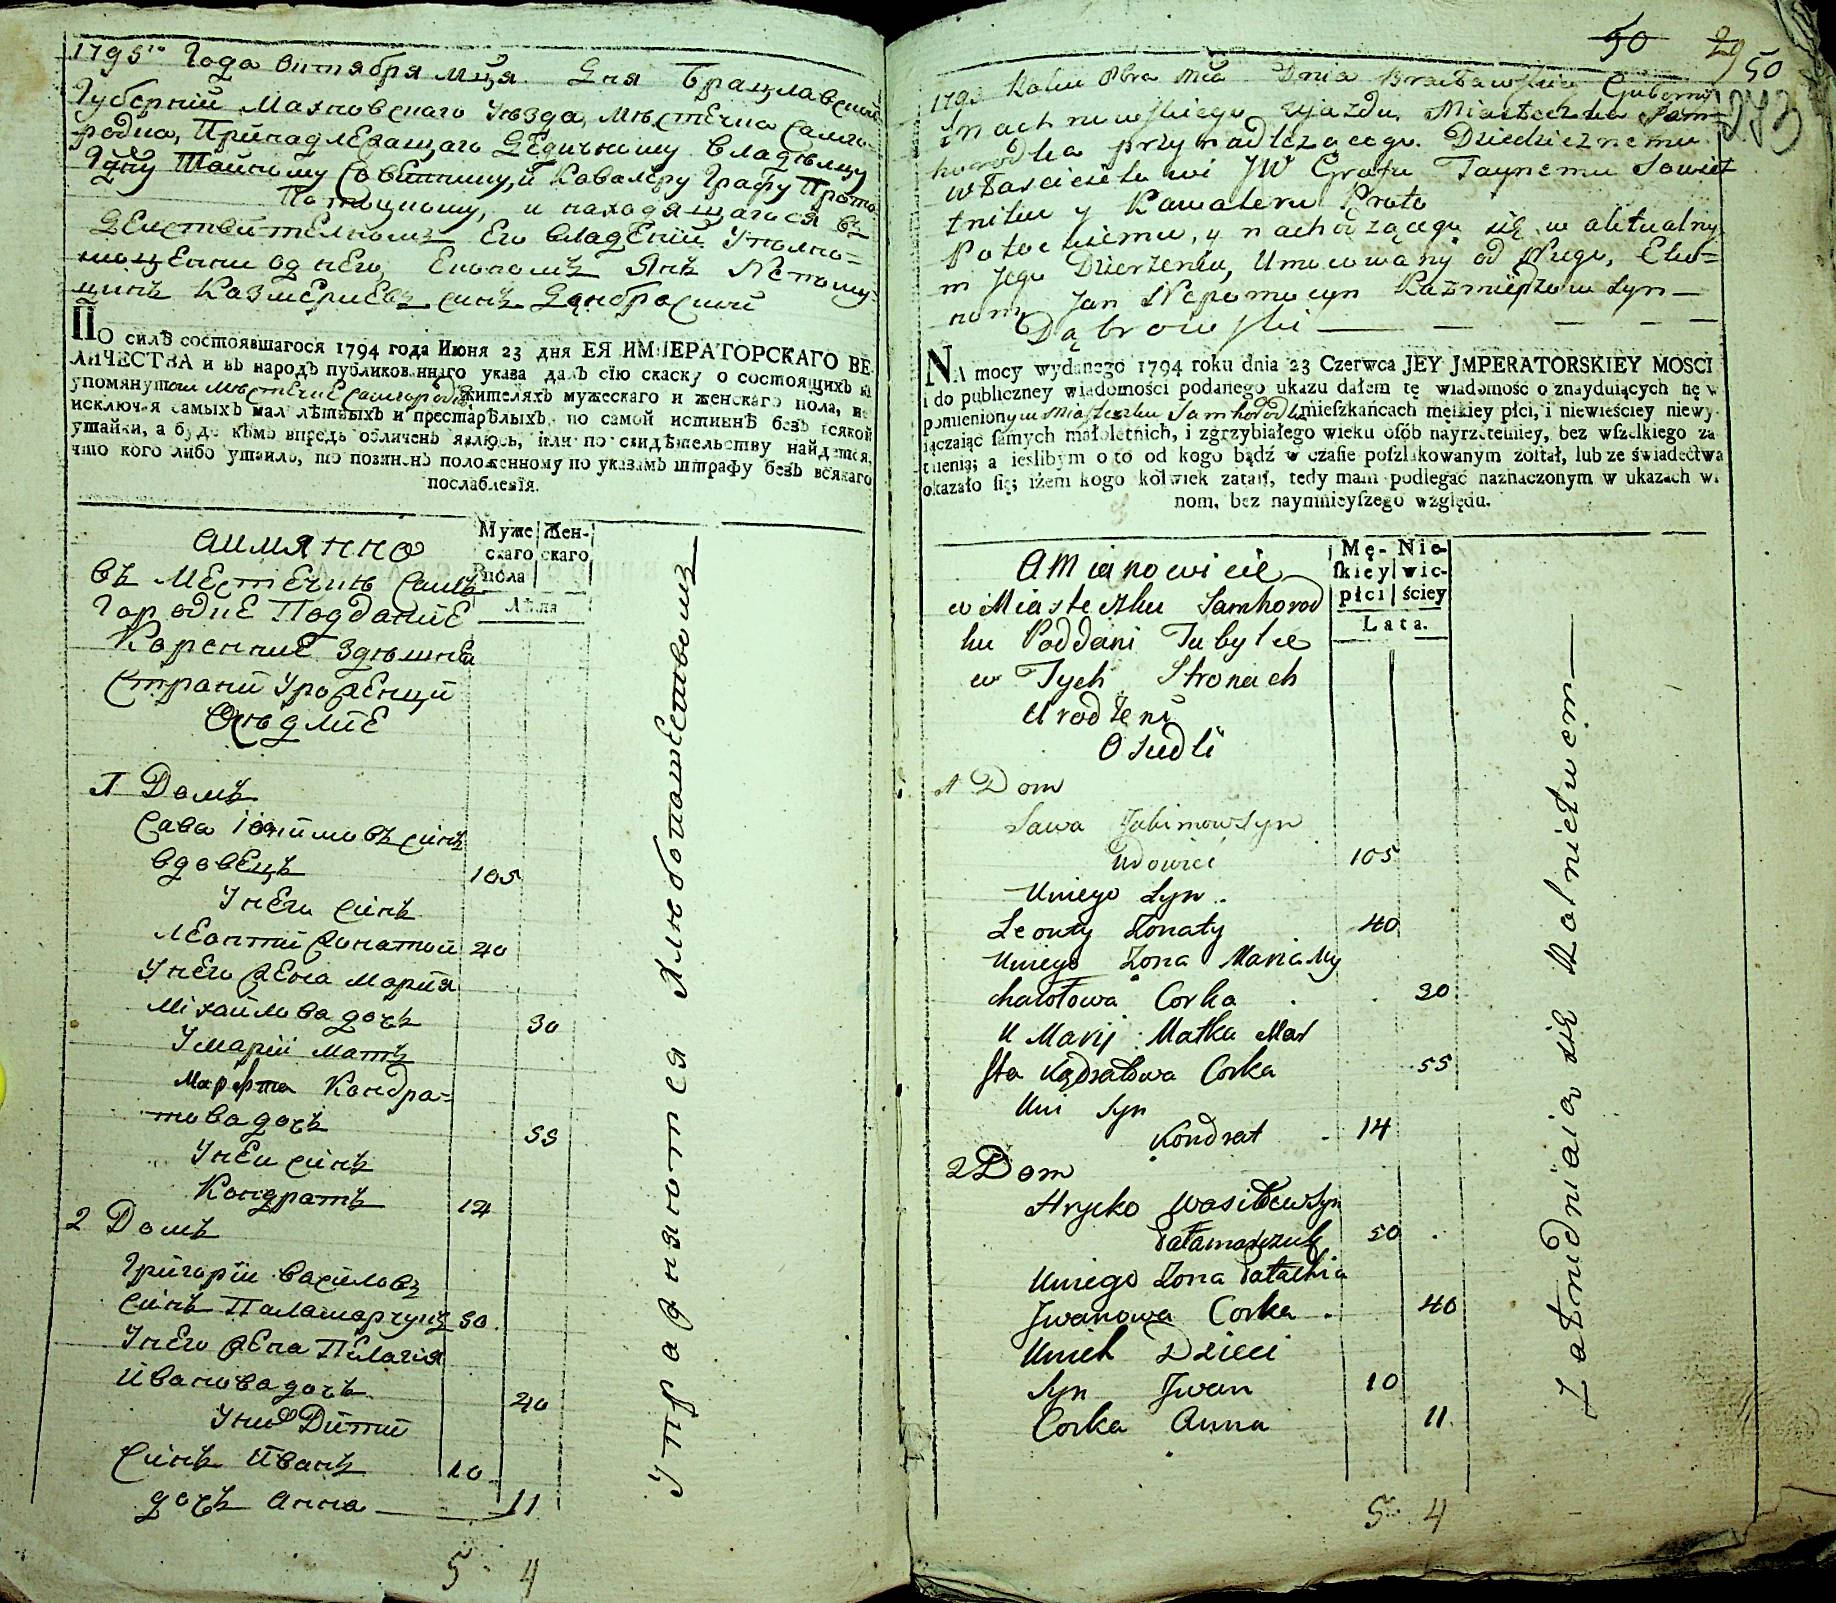 1795го Года Октября мця Дня Брацлавской
Губернїи Махновскаго Уезда, Мѣстечка Самго-
родка, Принадлежащаго Дедичному Владѣлцу
Гдну Тайному Совѣтнику, и Кавалеру Графу Прото
Потоцкому, и находящагося въ
Действителномъ Его владенїи Уполно=
моценни од него, Економъ Янъ Непому=
цинъ Казмериевъ синъ Домбровский
ПО силѣ состоявшагося 1794 года Июня 23 дня ЕЯ ИМПЕРАТОРСКАГО ВЕ-
ЛИЧЕСТВА и въ народъ публикованнаго указа далъ сїю скаску о состоящихъ въ
упомянутом Мѣстечке Самгородкѣ жителяхъ мужескаго и женскаго пола, не
исключая самыхъ малолѣтныхъ и престарѣлыхъ, по самой истиннѣ безъ всякой
утайки, а буде кѣмъ впредь обличенъ явлюсь, или по свидѣтельству найдется,
что кого либо утаилъ, то повиненъ положенному по указамъ штрафу безъ всякаго
послабленїя.
Аимянно
Муже
скаго
пола
Жен-
скаго
Лѣта
въ Местечкѣ Самъ
Городке Поддание
Коренние Здѣшней
Страни Уроженци
Осѣдлие
1 Домъ
Сава Іокимовъ синъ
вдовецъ 105
У него синъ
Леонтий Жонатий 40
У него жена Мария
Міхайлова дочь 30
У Марїи мать
Марфта Кондра=
това дочь 55
У неи синъ
Кондратъ 14
2 Домъ
Григорїи Василовъ
синъ Паламарчукъ 50
У него жена Пелагия
Иванова дочь 40
У них Дити
Синъ Иванъ 10
дочъ Анна 11
5 4
Упражняются Хлебопашествомъ
50 29 50
273
1795 Roku 8bra mca Dnia Bracławskiey Guberni
Machnowskiego Ujazdu, Miasteczka Sam=
horodka przynadleżącego Dziedzicznemu
właścicielowi JW Grafu Taynemu Sowiet
tniku y Kawaleru Proto
Potockiemu, y nachodzącego się w aktualny
m Jego Dzierżeniu, Umocowany od Niego, Eko=
nom Jan Nepomucyn Kazmierzow syn
Dąbrowski
NA mocy wydanego 1794 roku dnia 23 Czerwca JEY JMPERATORSKIEY MOSCI
i do publiczney wiadomości podanego ukazu dałem tę wiadomość o znayduiących się w
pomienionym Miasteczku Samhorodku mieszkańcach męskiey płci, i niewieściey niewy-
łączaiąc samych małoletnich, i zgrzybiałego wieku osób nayrzetelniey, bez wszelkiego za
taienia; a ieślibym o to od kogo bądź w czasie poszlakowanym został, lub ze świadectwa
okazało się; iżem kogo kolwiek zataił, tedy mam podlegać naznaczonym w ukazach wi
nom, bez naymnieyszego względu.
A Mianowicie
Mę-
skiey
płci
Nie-
wie-
ściey
Lata.
w Miasteczku Samhorod
ku Poddani Tubylce
w Tych Stronach
Urodzeni
Osiedli
1 Dom
Sawa Jakimow Syn
Udowiec 105
U niego Syn
Leonty Żonaty 40
U niego Żona Maria My
chałowa Corka 30
U Maryi Matka Mar
fta Kądratowa Corka 55
U ni Syn
Kondrat 14
2 Dom
Hrycko Wasilew Syn
Pałamarczuk 50
U niego Żona Pałachia
Jwanowa Corka 40
U nich Dzieci
Syn Jwan 10
Corka Anna 11
5 4
Zatrudniaią się Rolnictwem